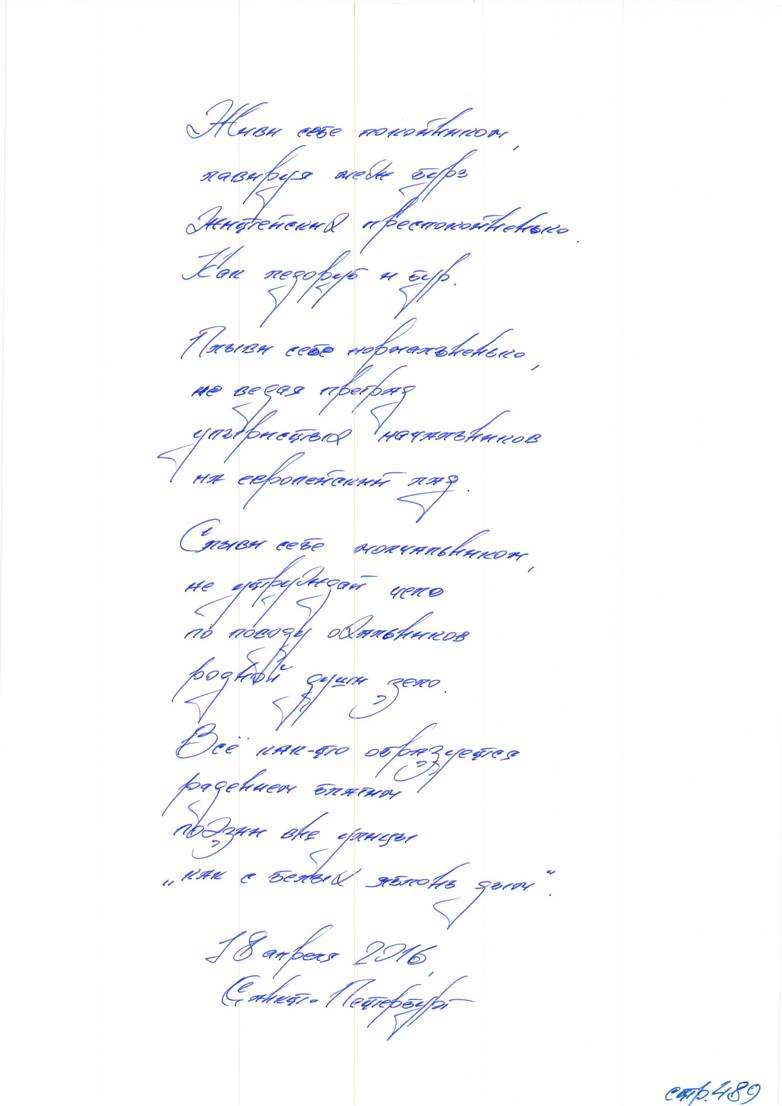 Живи себе покойником,
лавируя меж бурь
житейских преспокойненько.
Как ледоруб и бур.

Плыви себе нормальненько,
не ведая преград
упёристых начальников
на европейский лад.

Слыви себе молчальником,
не утруждай чело
по поводу охальников
родной души зело.

Всё как-то образуется
радением благим
поэзии вне улицы
„как с белых яблонь дым“.

18 апреля 2016,
Санкт-Петербург
стр. 489